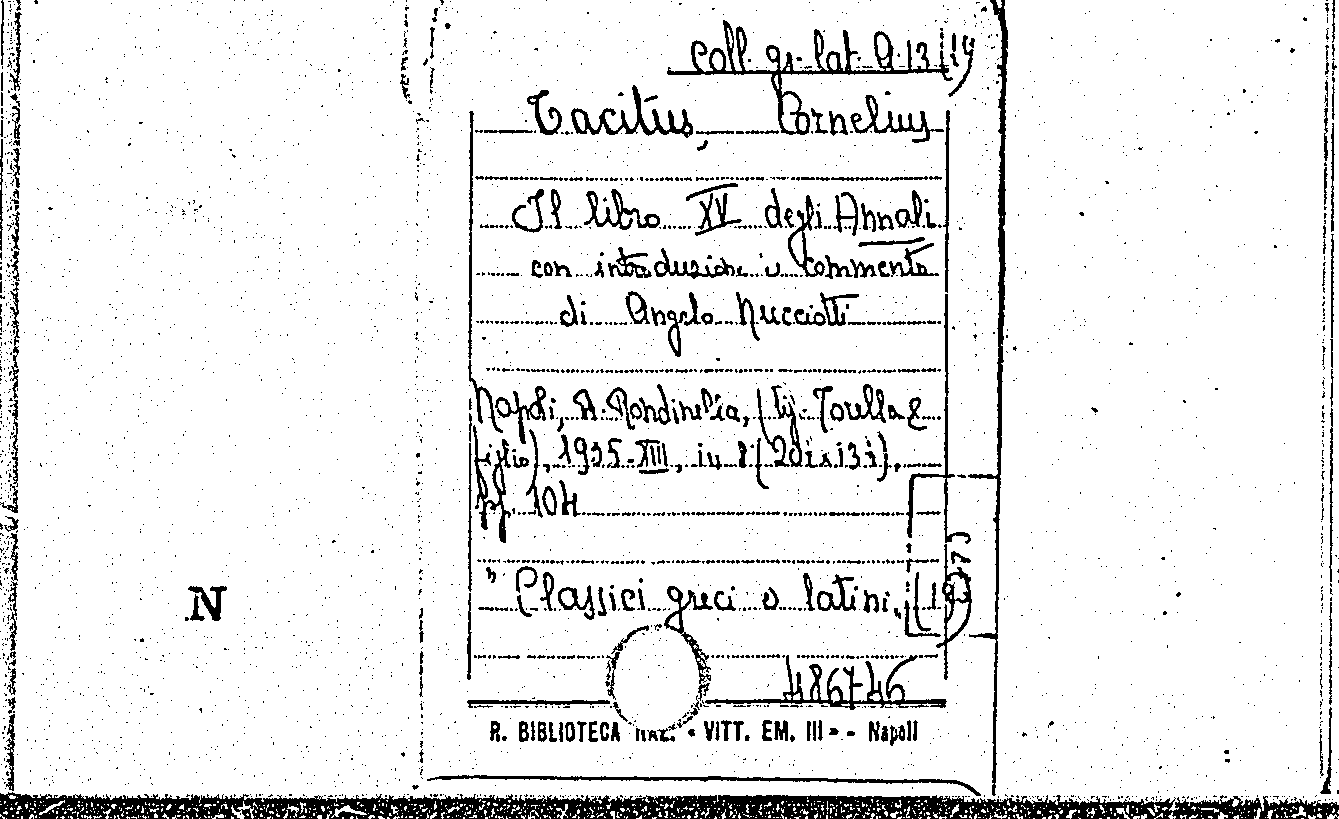 coll. gr. lat. A. 13 (19
Tacitus, Cornelius
Il libro XV degli Annali
con introduzione e commento
di Angelo Nucciotti
Napoli, A. Rondinella, (tip. Torella e
figlio), 1935-XIII, in 8
pp. 104
" Classici greci e latini.
N
486746
R. BIBLIOTECA NAZ. « VITT. EM. III » - Napoli